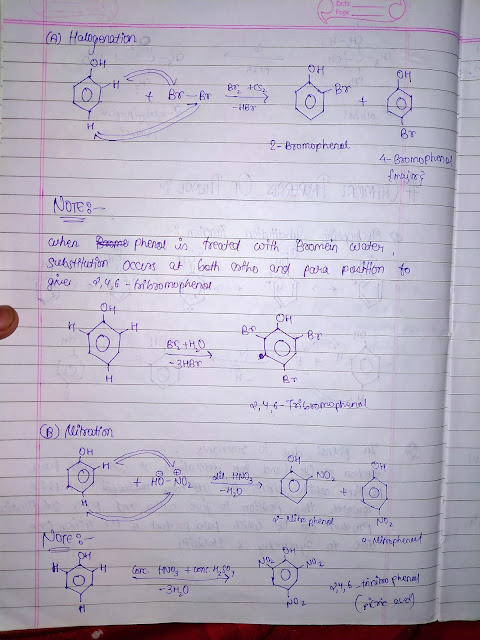 Date
Page
(A) Halogenation
OH
H
H
+ Br-Br
Br2 + CS2
-HBr
OH
Br
2-Bromophenol
+
OH
Br
4-Bromophenol
{major}
NOTE:-
when phenol is treated with Bromein water,
substitution occurs at both ortho and para position to
give 2,4,6-tribromophenol
OH
H
H
H
Br2 + H2O
-3HBr
OH
Br
Br
Br
2,4,6-Tribromophenol
(B) Nitration
OH
H
H
+ HO-NO2
dil. HNO3
-H2O
OH
NO2
2-Nitrophenol
+
OH
NO2
4-Nitrophenol
NOTE:-
OH
H
H
H
Conc. HNO3 + conc. H2SO4
-3H2O
OH
NO2
NO2
NO2
2,4,6-trinitrophenol
(picric acid)